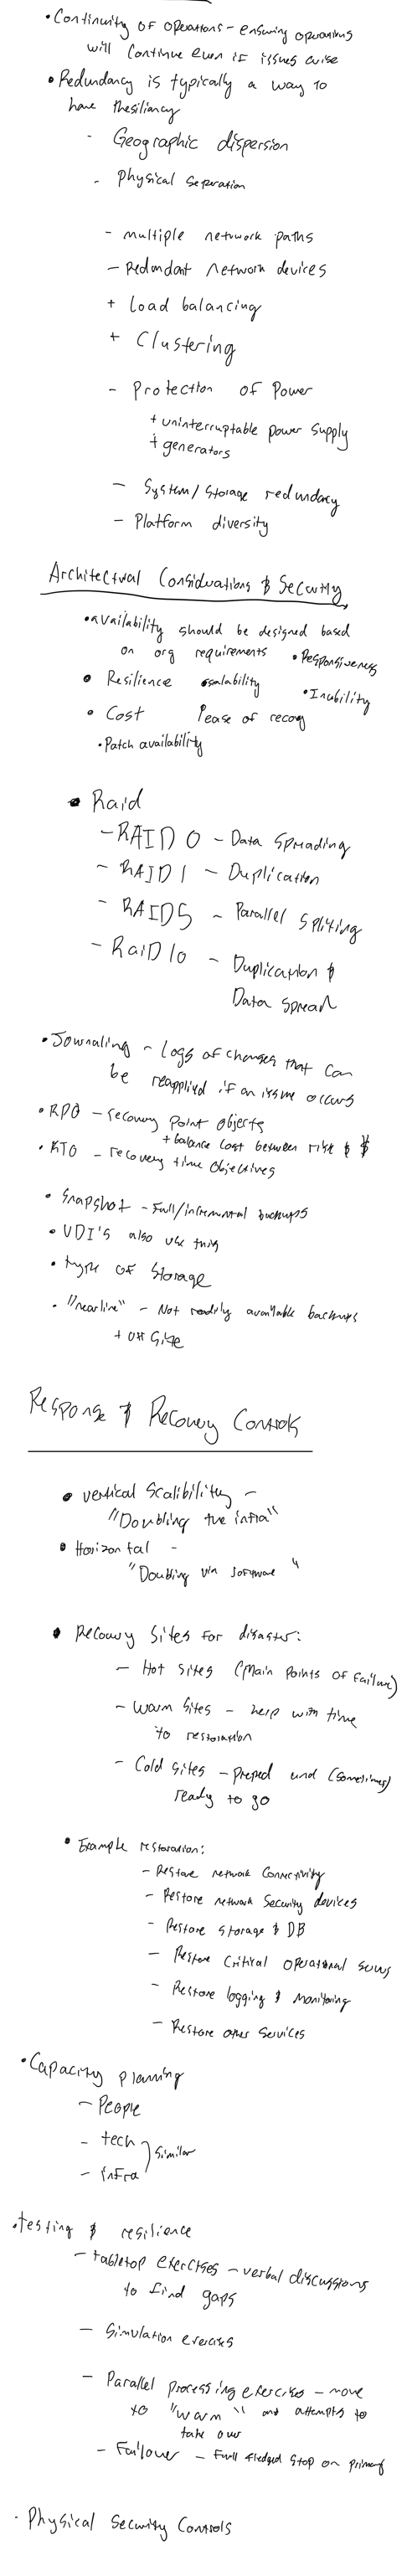 • Continuity of operations - ensuring operations
will continue even if issues arise
• Redundancy is typically a way to
have thesiliancy
- Geographic dispersion
- Physical Seperation
- multiple network paths
- Redundant Network devices
+ Load balancing
+ Clustering
- Protection of Power
+ uninterruptable power supply
+ generators
- System/Storage redundacy
- Platform diversity
Architectual Considerations & Security
• availability should be designed based
on org requirements • Responsiveness
• Resilience • scalability • Inability
• Cost • ease of recory
• Patch availability
• Raid
- RAID 0 - Data Spreading
- RAID 1 - Duplication
- RAID 5 - Parallel Spliting
- RaiD 10 - Duplication &
Data Spread
• Journaling - Logs of changes that can
be reapplied if an issue occurs
• RPO - recovery point objects
+ balance cost between risk & $
• RTO - recovery time objectives
• Snapshot - Full/incremental backups
• VDI's also use this
• type of Storage
• "nearline" - Not readily available backups
+ off site
Response & Recovery Controls
• vertical Scalibility -
"Doubling the infra"
• Horizontal -
"Doubling via software"
• Recovery Sites for disaster:
- Hot Sites (Main Points of Failure)
- Warm Sites - help with time
to restoration
- Cold Sites - preped and (sometimes)
ready to go
• Example restoration:
- Restore network Connectivity
- Restore network Security devices
- Restore Storage & DB
- Restore Critical operational
- Restore logging & Monitoring
- Restore other Services
• Capacity planning
- People
- tech
- infra
similar
• testing & resilience
- tabletop exercises - verbal discussions
to find gaps
- Simulation exercises
- Parallel processing exercises - move
to "warm" and attempts to
take over
- Failover - Full fledged stop on primary
• Physical Security Controls